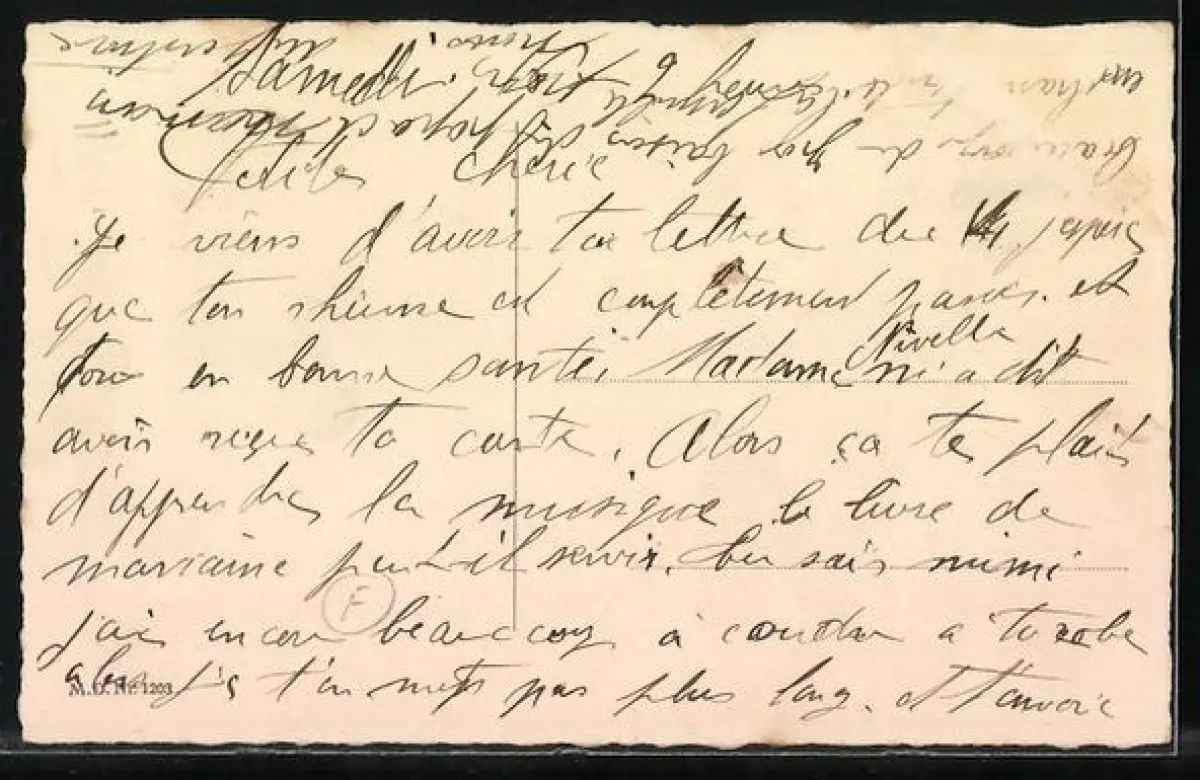 Samedi soir 6 heures
chérie
Je viens d'avoir ta lettre du 14, j'espère
que ton rhume est complètement passé. et
en bonne santé. Madame Nivelle m'a dit
avoir reçue ta carte. Alors ça te plait
d'apprendre la musique le livre de
marraine peut-il servir. tu sais mimi
j'ai encore beaucoup à coudre a ta robe
alors je t'en mets pas plus long. et t'envoie
de gros baisers de
papa et maman
F
M.D. Nr. 1203